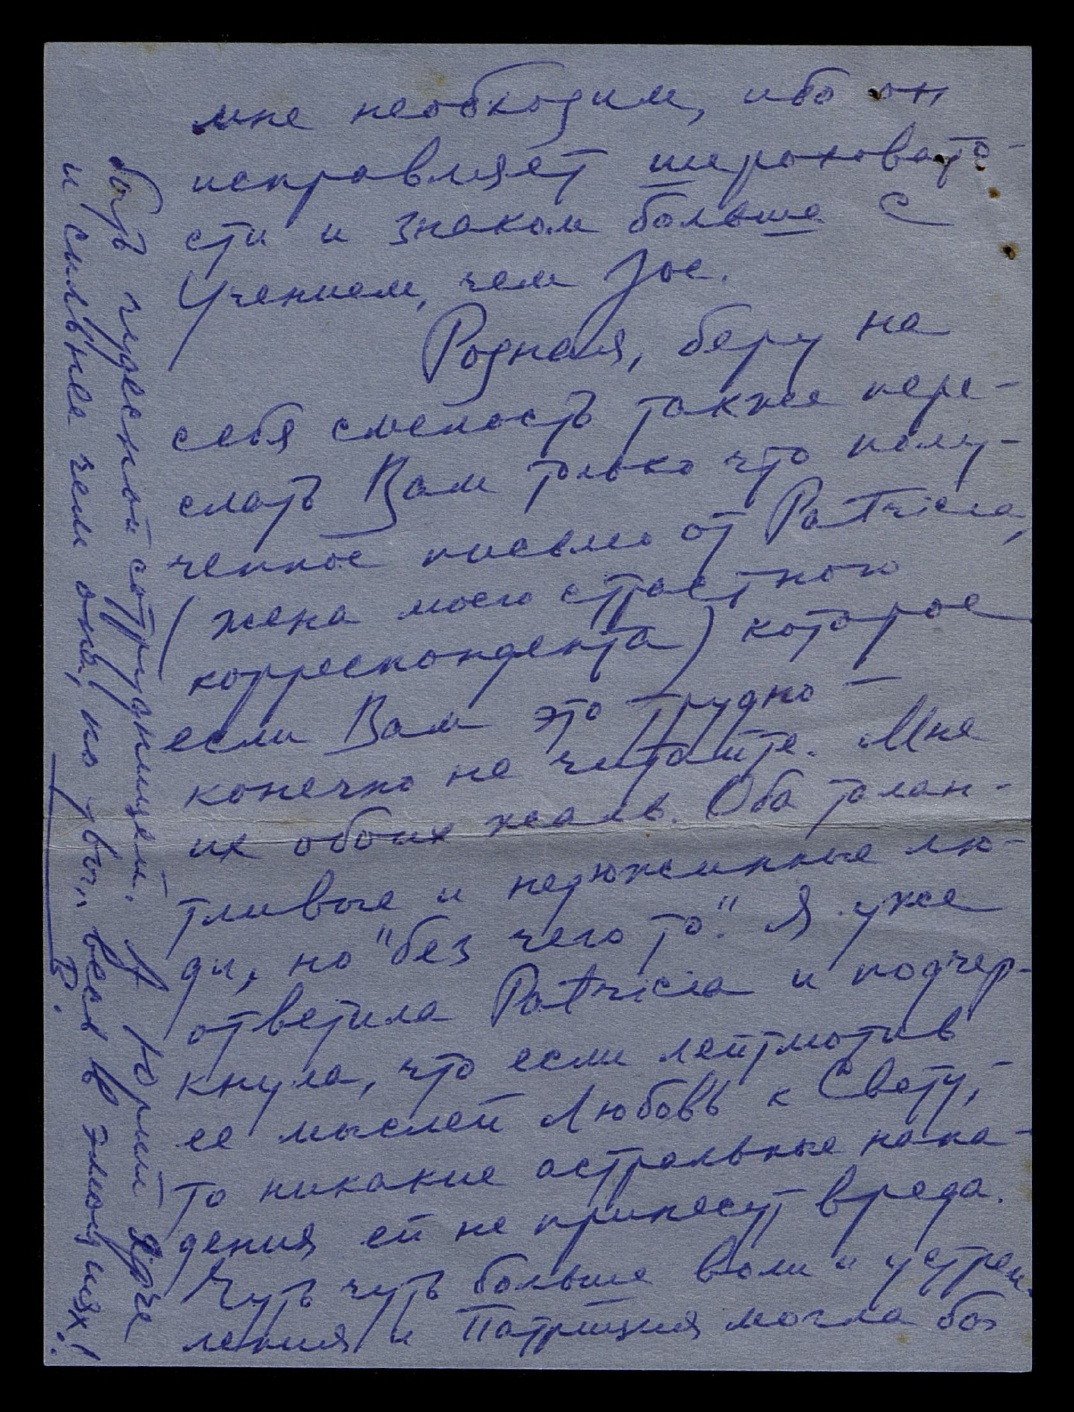 мне необходим, ибо он
исправляет шероховато-
сти и знаком больше с
Учением, чем Зое.
Родная, беру на
себя смелость также пере-
слать Вам только что полу-
ченное письмо от Patricia,
(жена моего страстного
корреспондента) которое
если Вам это трудно —
конечно не читайте. Мне
их обоих жаль. Оба талан-
тливые и недюжинные лю-
ди, но "без чего то". Я уже
ответила Patricia и подчер-
кнула, что если лейтмотив
ее мыслей Любовь к Свету,
то никакие астральные напа-
дения ей не принесут вреда.
Чуть чуть больше воли и устрем-
ления и Патриция могла бы
быть чудесной сотрудницей. А Юрий ярче
и сильнее чем она, но увы, весь в эмоциях!